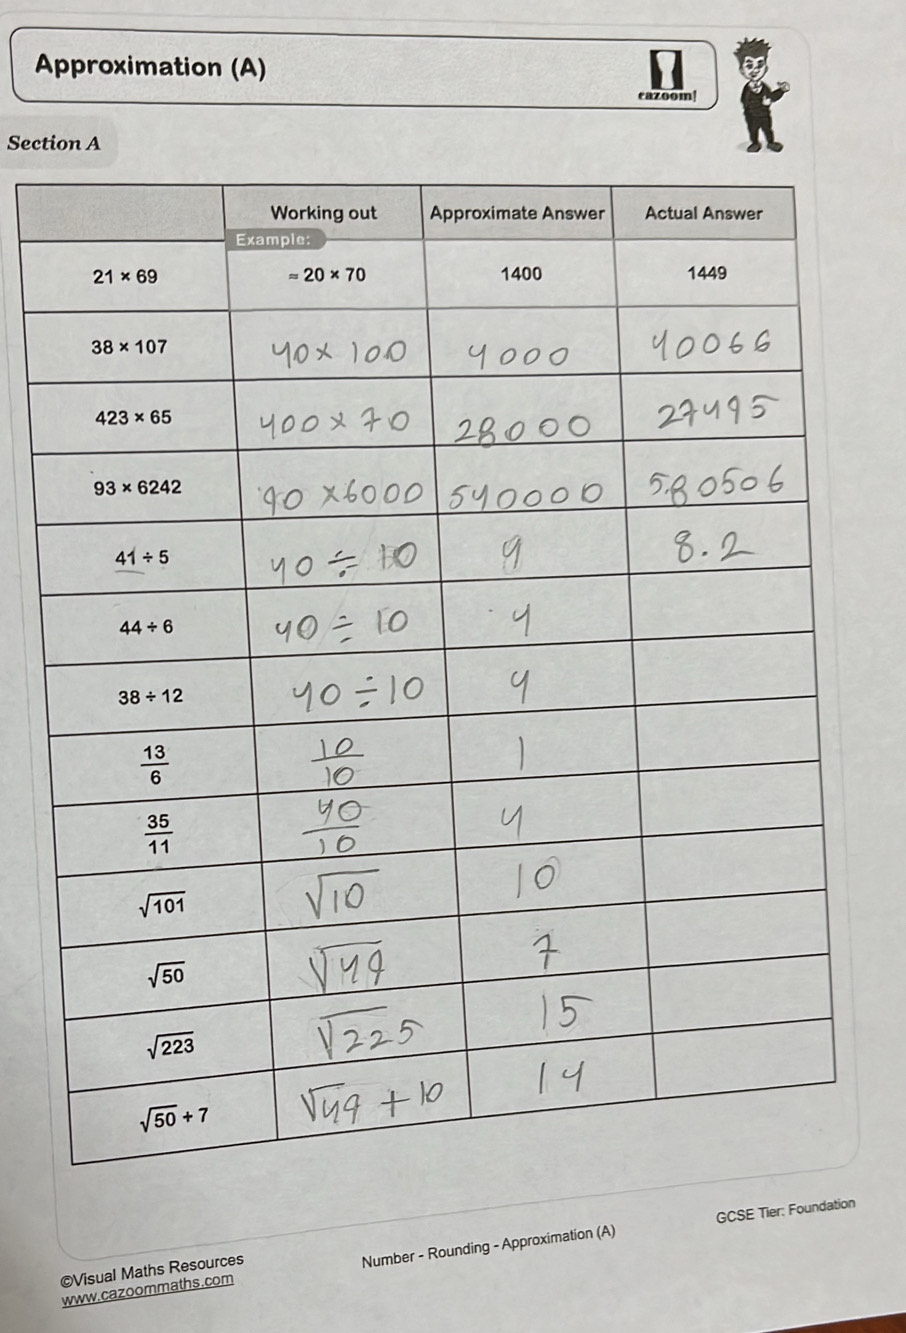 Approximation (A)
cazoom!
Section A
Working out Approximate Answer Actual Answer
Example:
21 × 69 ≈ 20 × 70 1400 1449
38 × 107 40 × 100 4000 40066
423 × 65 400 × 70 28000 27495
93 × 6242 90 × 6000 540000 580506
41 ÷ 5 40 ÷ 10 9 8.2
44 ÷ 6 40 ÷ 10 4
38 ÷ 12 40 ÷ 10 4
13/6 10/10 1
35/11 40/10 4
√101 √10 10
√50 √49 7
√223 √225 15
√50 + 7 √49 + 10 14
©Visual Maths Resources
www.cazoommaths.com
Number - Rounding - Approximation (A)
GCSE Tier: Foundation